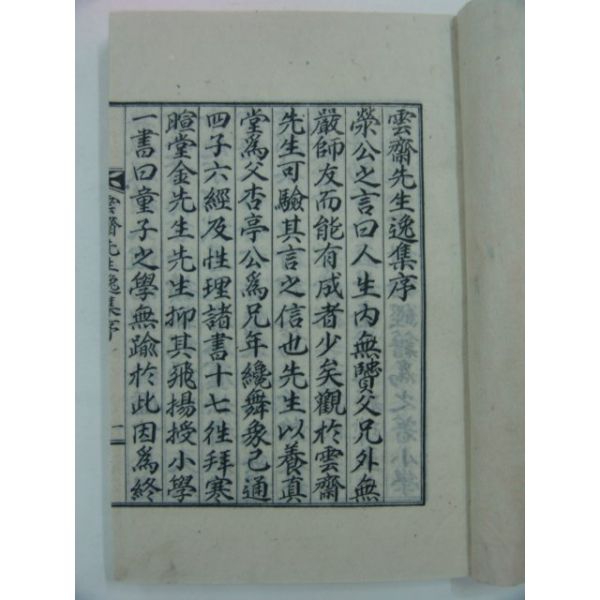 雲齋先生逸集序
榮公之言曰人生內無賢父兄外無
嚴師友而能有成者少矣觀於雲齋
先生可驗其言之信也先生以養真
堂爲父杏亭公爲兄年纔舞象已通
四子六經及性理諸書十七徃拜寒
暄堂金先生先生抑其飛揚授小學
一書曰童子之學無踰於此因爲終
雲齋先生逸集序
一